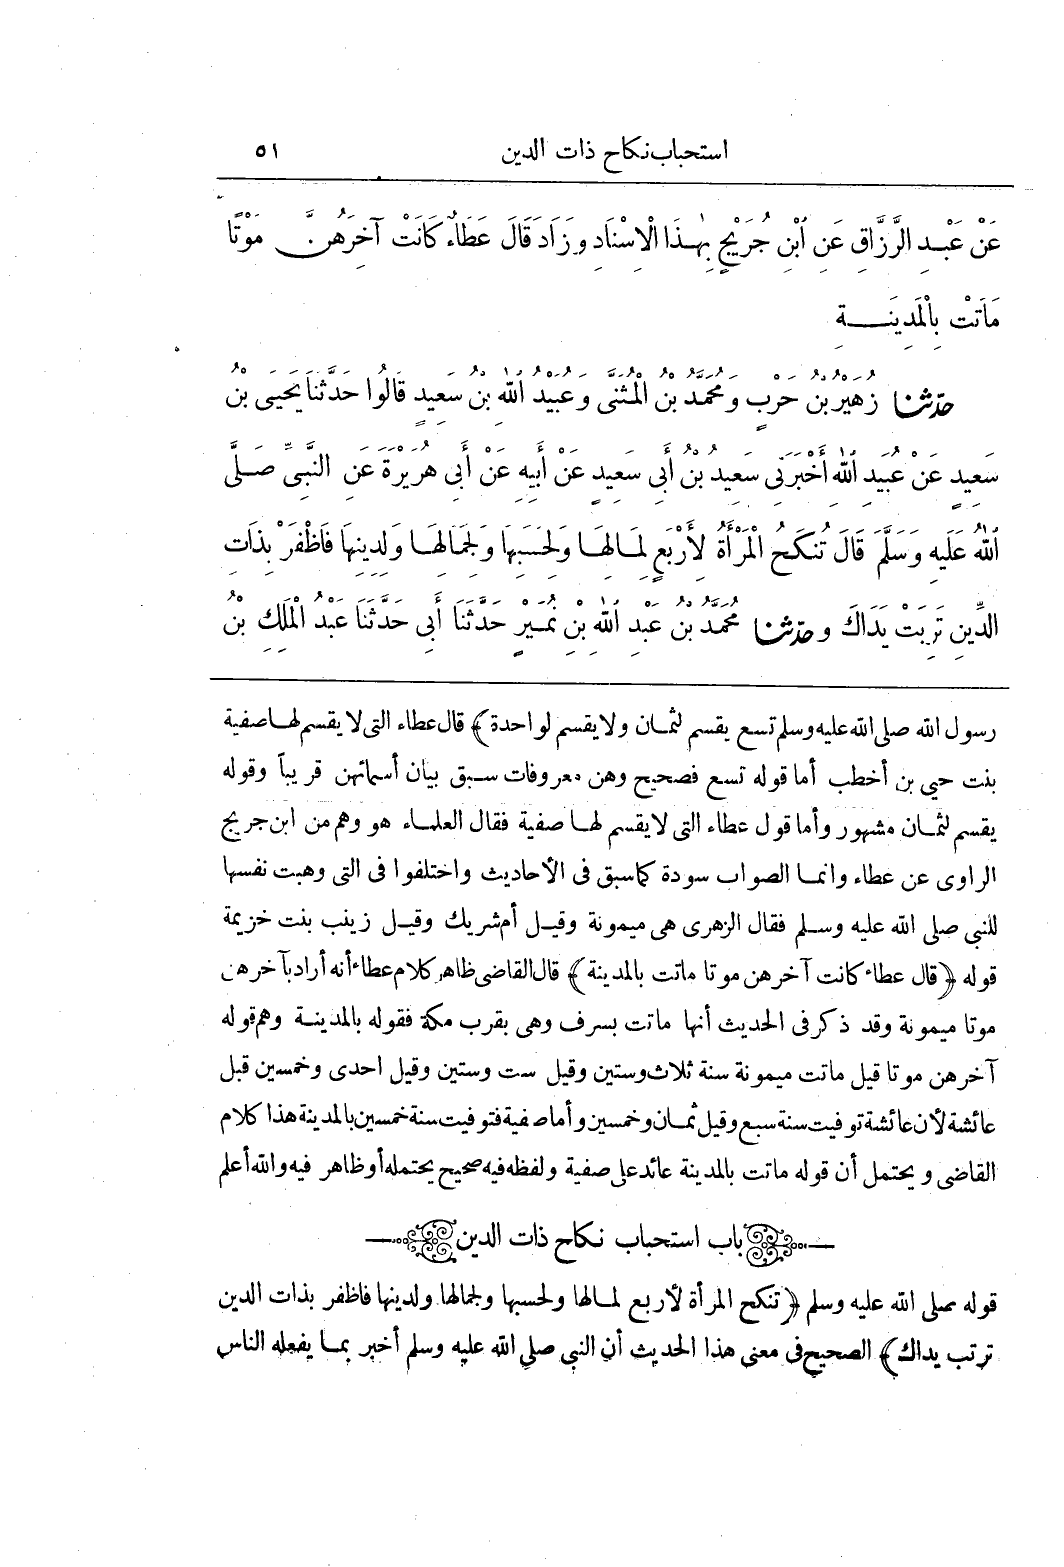 استحباب نكاح ذات الدين ٥١
عَنْ عَبْدِ الرَّزَّاقِ عَنِ ابْنِ جُرَيْجٍ بِهٰذَا الْاِسْنَادِ وَزَادَ قَالَ عَطَاءٌ كَانَتْ آخِرَهُنَّ مَوْتًا
مَاتَتْ بِالْمَدِينَةِ
حدثنا زُهَيْرُ بْنُ حَرْبٍ وَمُحَمَّدُ بْنُ الْمُثَنَّى وَعُبَيْدُ اللهِ بْنُ سَعِيدٍ قَالُوا حَدَّثَنَا يَحْيَى بْنُ
سَعِيدٍ عَنْ عُبَيْدِ اللهِ أَخْبَرَنِى سَعِيدُ بْنُ أَبِى سَعِيدٍ عَنْ أَبِيهِ عَنْ أَبِى هُرَيْرَةَ عَنِ النَّبِىِّ صَلَّى
اللهُ عَلَيْهِ وَسَلَّمَ قَالَ تُنْكَحُ الْمَرْأَةُ لِأَرْبَعٍ لِمَالِهَا وَلِحَسَبِهَا وَلِجَمَالِهَا وَلِدِينِهَا فَاظْفَرْ بِذَاتِ
الدِّينِ تَرِبَتْ يَدَاكَ وحدثنا مُحَمَّدُ بْنُ عَبْدِ اللهِ بْنِ نُمَيْرٍ حَدَّثَنَا أَبِى حَدَّثَنَا عَبْدُ الْمَلِكِ بْنُ
رسول الله صلى الله عليه وسلم تسع يقسم لثمان ولا يقسم لواحدة﴾ قال عطاء التى لا يقسم لها صفية
بنت حيي بن أخطب أما قوله تسع فصحيح وهن معروفات سبق بيان أسمائهن قريباً وقوله
يقسم لثمان مشهور وأما قول عطاء التى لا يقسم لها صفية فقال العلماء هو وهم من ابن جريج
الراوى عن عطاء وانما الصواب سودة كما سبق فى الأحاديث واختلفوا فى التى وهبت نفسها
للنبى صلى الله عليه وسلم فقال الزهرى هى ميمونة وقيل أم شريك وقيل زينب بنت خزيمة
قوله ﴿قال عطاء كانت آخرهن موتا ماتت بالمدينة﴾ قال القاضى ظاهر كلام عطاء أنه أراد بآخرهن
موتا ميمونة وقد ذكر فى الحديث أنها ماتت بسرف وهى بقرب مكة فقوله بالمدينة وهم قوله
آخرهن موتا قيل ماتت ميمونة سنة ثلاث وستين وقيل ست وستين وقيل احدى وخمسين قبل
عائشة لأن عائشة توفيت سنة سبع وقيل ثمان وخمسين وأما صفية فتوفيت سنة خمسين بالمدينة هذا كلام
القاضى ويحتمل أن قوله ماتت بالمدينة عائد على صفية ولفظه فيه صحيح يحتمله أو ظاهر فيه والله أعلم
باب استحباب نكاح ذات الدين
قوله صلى الله عليه وسلم ﴿تنكح المرأة لأربع لمالها ولحسبها ولجمالها ولدينها فاظفر بذات الدين
تربت يداك﴾ الصحيح فى معنى هذا الحديث أن النبى صلى الله عليه وسلم أخبر بما يفعله الناس